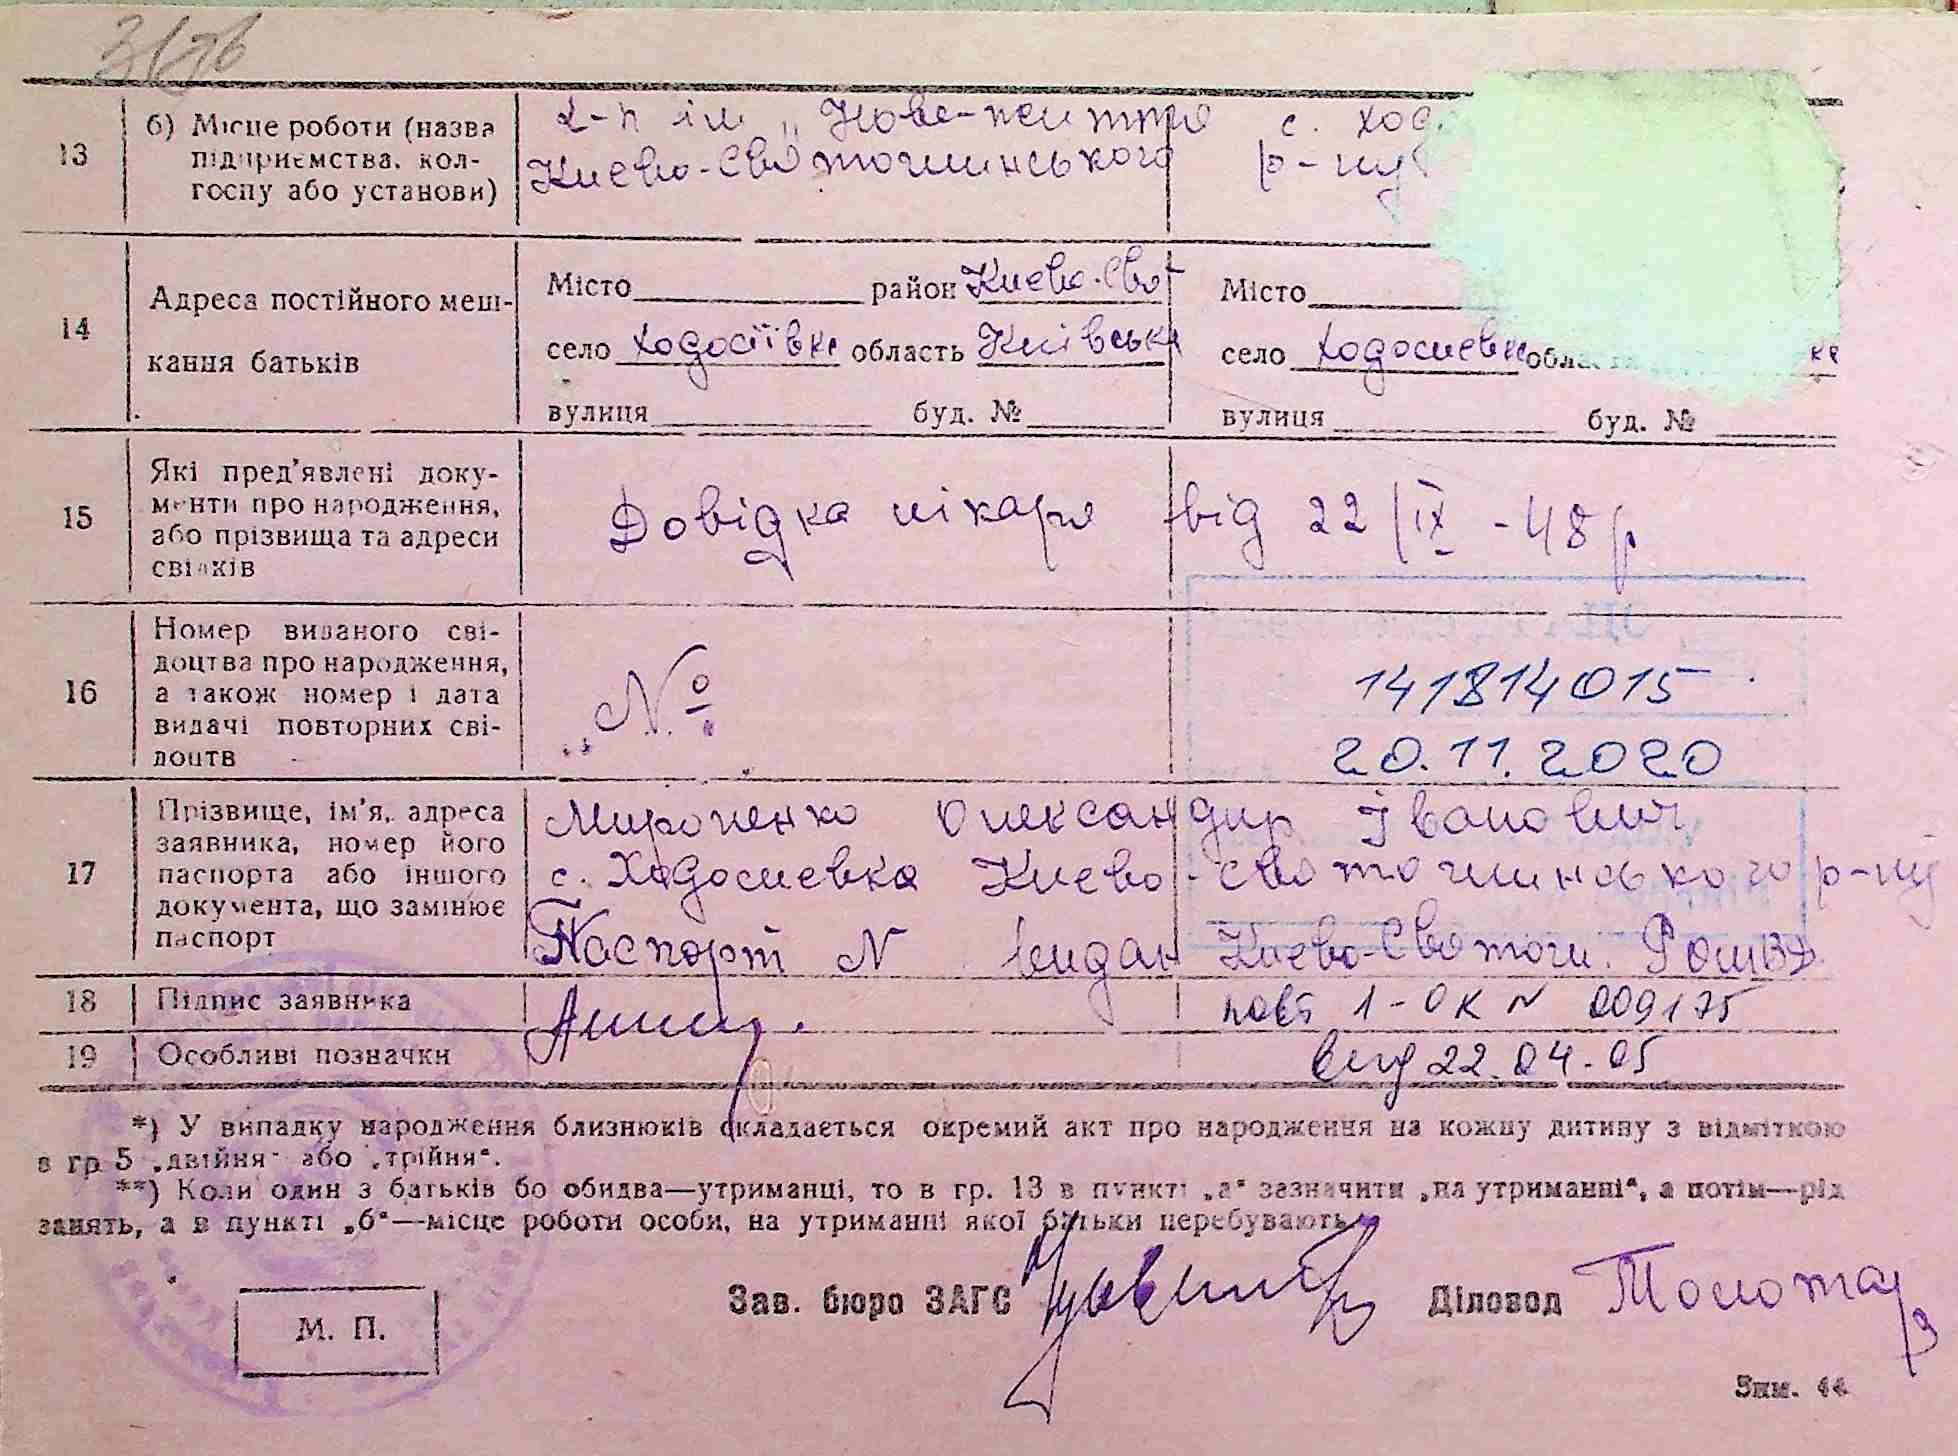 13 б) Місце роботи (назва підприємства, колгоспу або установи)
к-п ім „Нове-життя с. Ход
Києво-Святошинського р-ну
14 Адреса постійного мешкання батьків
Місто район Києво-Свят
село Ходосіївка область Київська
вулиця буд. №
Місто
село Ходосиевка
вулиця буд. №
15 Які пред'явлені документи про народження, або прізвища та адреси свідків
Довідка лікаря від 22/IX -48 р
16 Номер виданого свідоцтва про народження, а також номер і дата видачі повторних свідоцтв
„№
141814015
20.11.2020
17 Прізвище, ім'я, адреса заявника, номер його паспорта або іншого документа, що замінює паспорт
Мироненко Олександир Іванович
с. Ходосиевка Києво-святошинського р-ну
Паспорт N видан Києво-Святош.
18 Підпис заявника
повт 1-ОК N 009175
19 Особливі позначки
вид 22.04.05
*) У випадку народження близнюків складається окремий акт про народження на кожну дитину з відміткою
в гр 5 „двійня" або „трійня".
**) Коли один з батьків бо обидва—утриманці, то в гр. 13 в пункті „а" зазначити „на утриманні", а потім—рід
занять, а в пункті „б"—місце роботи особи, на утриманні якої батьки перебувають
Зав. бюро ЗАГС Діловод
М. П.
Зим. 44